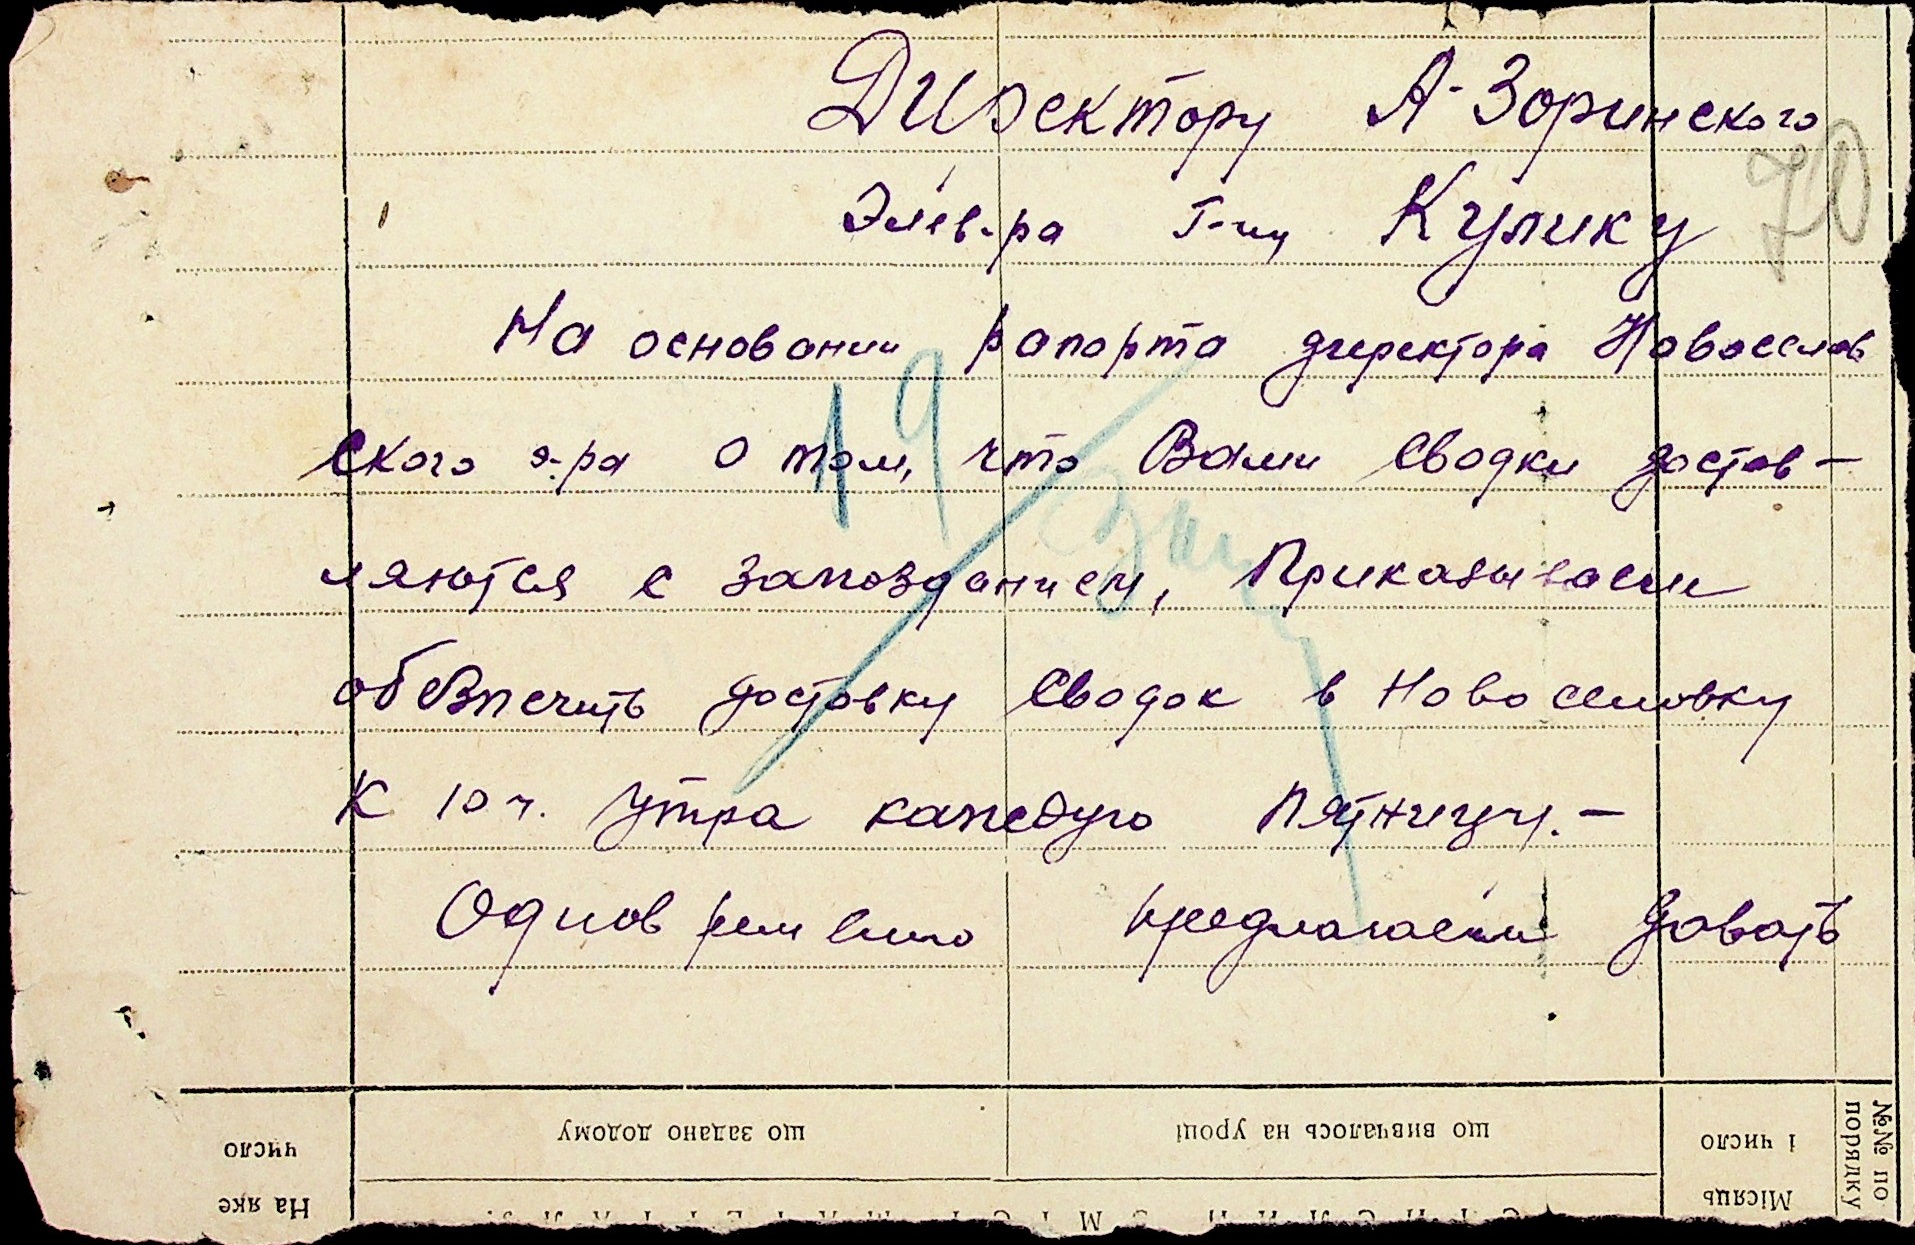 Директору А-Зоринского
70
Элев-ра Г-ну Кулику
На основании рапорта директора Новоселов
ского э-ра о том, что Вами сводки достав-
19
ляются с запозданием, Приказываем
обезпечить доставку сводок в Новоселовку
К 10 ч. утра каждую пятницу.-
Одновременно предлагаем давать
№№ по порядку
Місяць і число
що вивчалось на уроці
що задано додому
На яке число